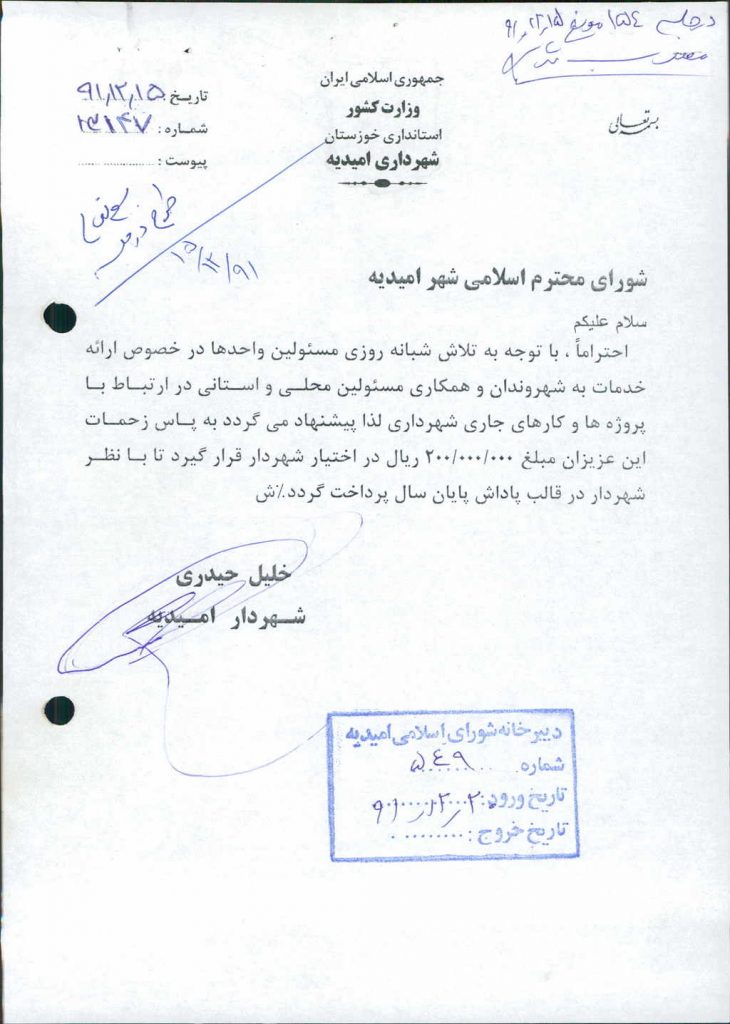 در جلسه ۱۵۴ مورخ
بسمه تعالی
جمهوری اسلامی ایران
وزارت کشور
استانداری خوزستان
شهرداری امیدیه
تاریخ : ۹۱,۱۲,۱۵
شماره : ۱۳۱۴۷
پیوست : ....................
طرح در
۹۱/۱۲/۱۵
شورای محترم اسلامی شهر امیدیه
سلام علیکم
احتراماً ، با توجه به تلاش شبانه روزی مسئولین واحدها در خصوص ارائه
خدمات به شهروندان و همکاری مسئولین محلی و استانی در ارتباط با
پروژه ها و کارهای جاری شهرداری لذا پیشنهاد می گردد به پاس زحمات
این عزیزان مبلغ ۲۰۰/۰۰۰/۰۰۰ ریال در اختیار شهردار قرار گیرد تا با نظر
شهردار در قالب پاداش پایان سال پرداخت گردد.٪ش
خلیل حیدری
شهردار امیدیه
دبیرخانه شورای اسلامی امیدیه
شماره ۵۴۹
تاریخ ورود:
تاریخ خروج : ..........